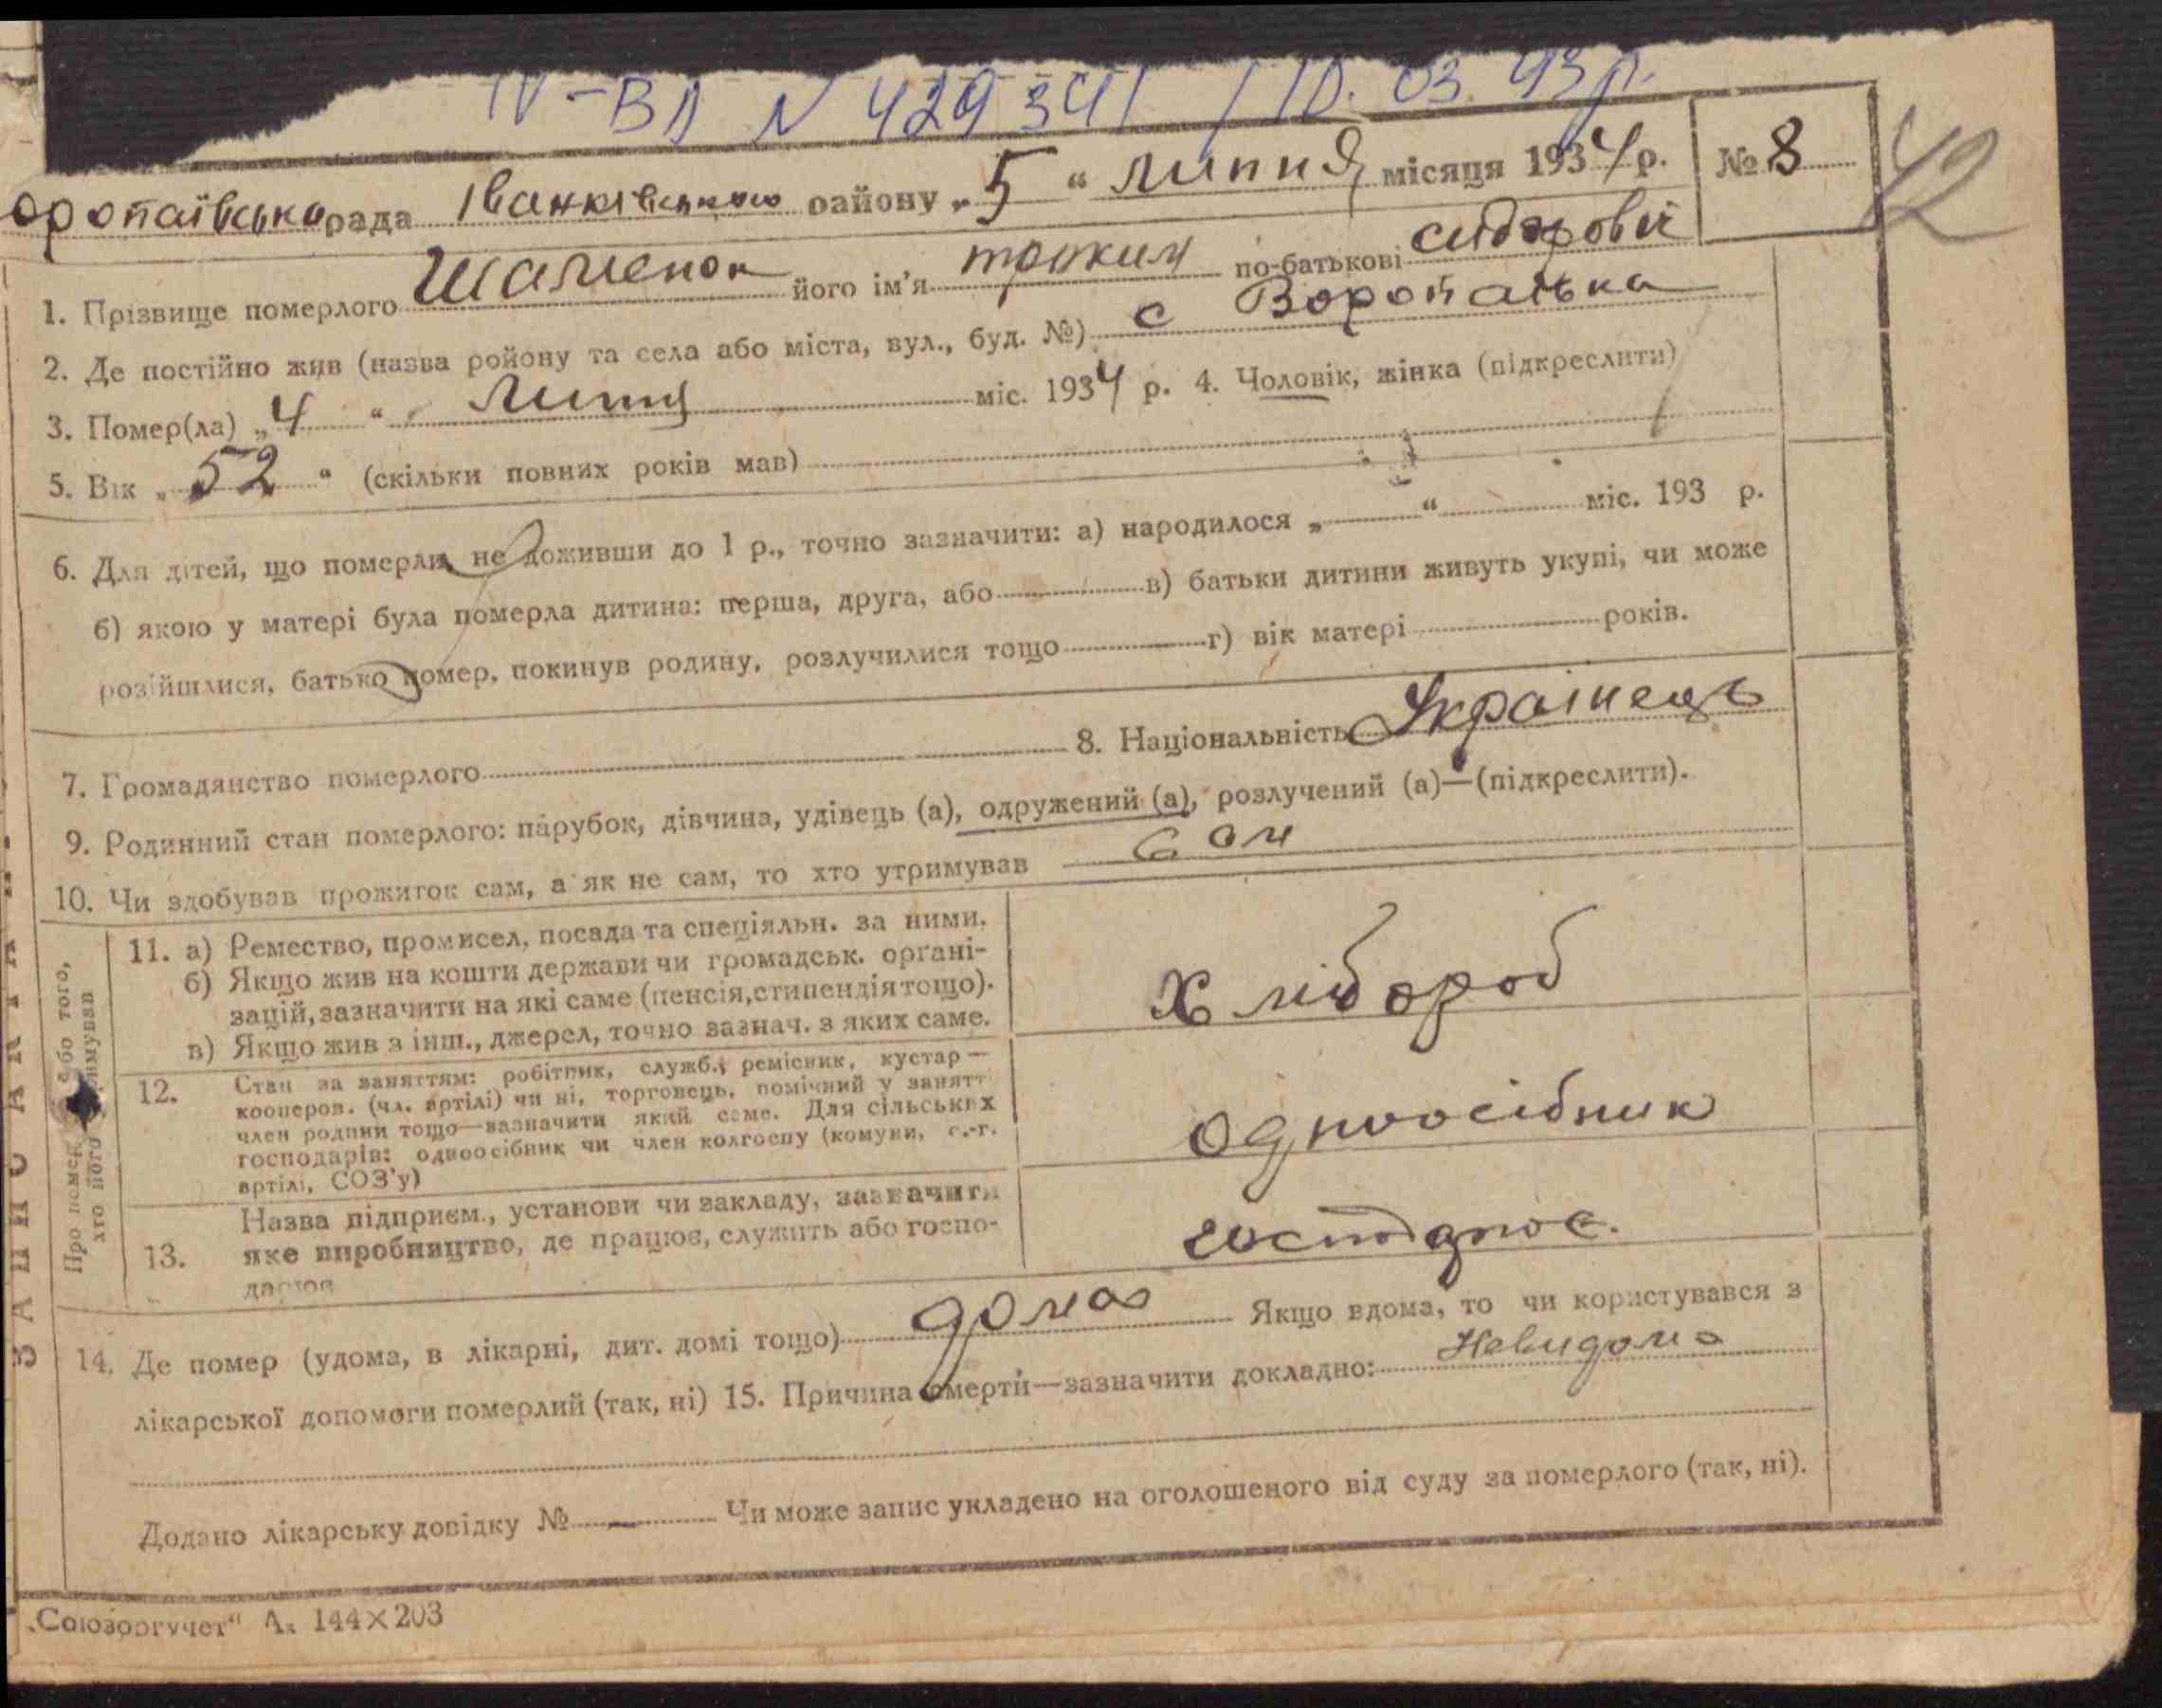 IV-ВЛ N 429341 / 10. 03. 93р.
оропаївська рада Іванківського району „5“ липня місяця 1934 р. № 8
42
1. Прізвище померлого Шаменок його ім’я по-батькові сидорович
2. Де постійно жив (назва ройону та села або міста, вул., буд. №) с Воропаївка
3. Помер(ла) „4“ липня міс. 1934 р. 4. Чоловік, жінка (підкреслити)
5. Вік „52“ (скільки повних років мав)
6. Для дітей, що померли, не доживши до 1 р., точно зазначити: а) народилося „ “ міс. 193 р.
б) якою у матері була померла дитина: перша, друга, або в) батьки дитини живуть укупі, чи може
розійшлися, батько помер, покинув родину, розлучилися тощо г) вік матері років.
7. Громадянство померлого 8. Національність Українець
9. Родинний стан померлого: парубок, дівчина, удівець (а), одружений (а), розлучений (а)—(підкреслити).
10. Чи здобував прожиток сам, а як не сам, то хто утримував сам
11. а) Ремество, промисел, посада та спеціяльн. за ними.
б) Якщо жив на кошти держави чи громадськ. органі-
зацій, зазначити на які саме (пенсія, стипендія тощо).
в) Якщо жив з інш., джерел, точно зазнач. з яких саме.
хлібороб
12. Стан за заняттям: робітник, служб., ремісник, кустар—
кооперов. (чл. артілі) чи ні, торговець, помічний у занятт
член родини тощо—вазначити який саме. Для сільських
господарів: одноосібник чи член колгоспу (комуни, с.-г.
артілі, СОЗ’у)
одноосібник
13. Назва підприєм., установи чи закладу, зазначити
яке виробництво, де працює, служить або госпо-
дарює
господарює.
14. Де помер (удома, в лікарні, дит. домі тощо) дома Якщо вдома, то чи користувався з
лікарської допомоги померлий (так, ні) 15. Причина смерти—зазначити докладно: Невидома
Додано лікарську довідку № — Чи може запис укладено на оголошеного від суду за померлого (так, ні).
„Союзоргучет“ А₅ 144×203